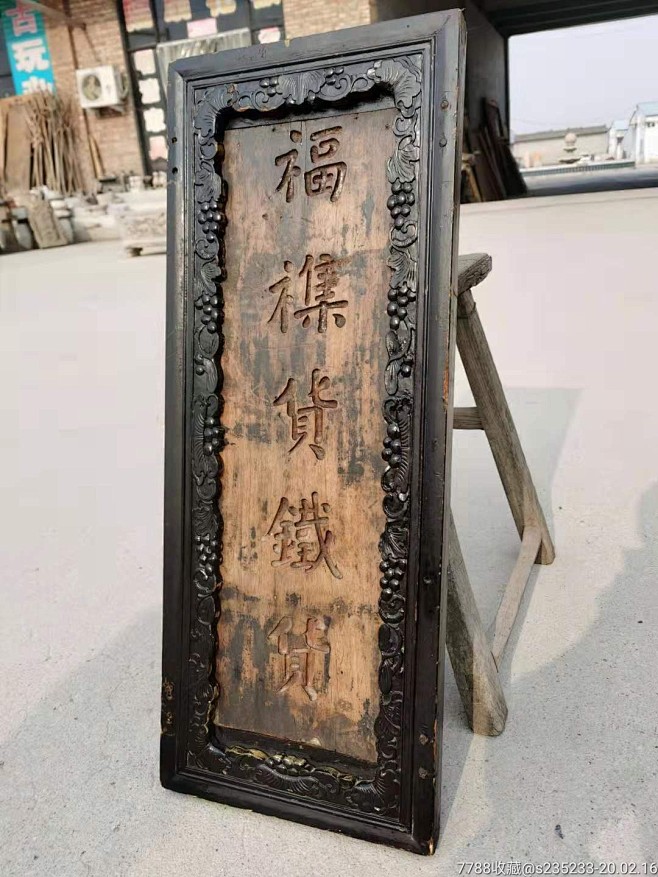 古玩
福襍貨鐵貨
7788收藏@s235233-20.02.16